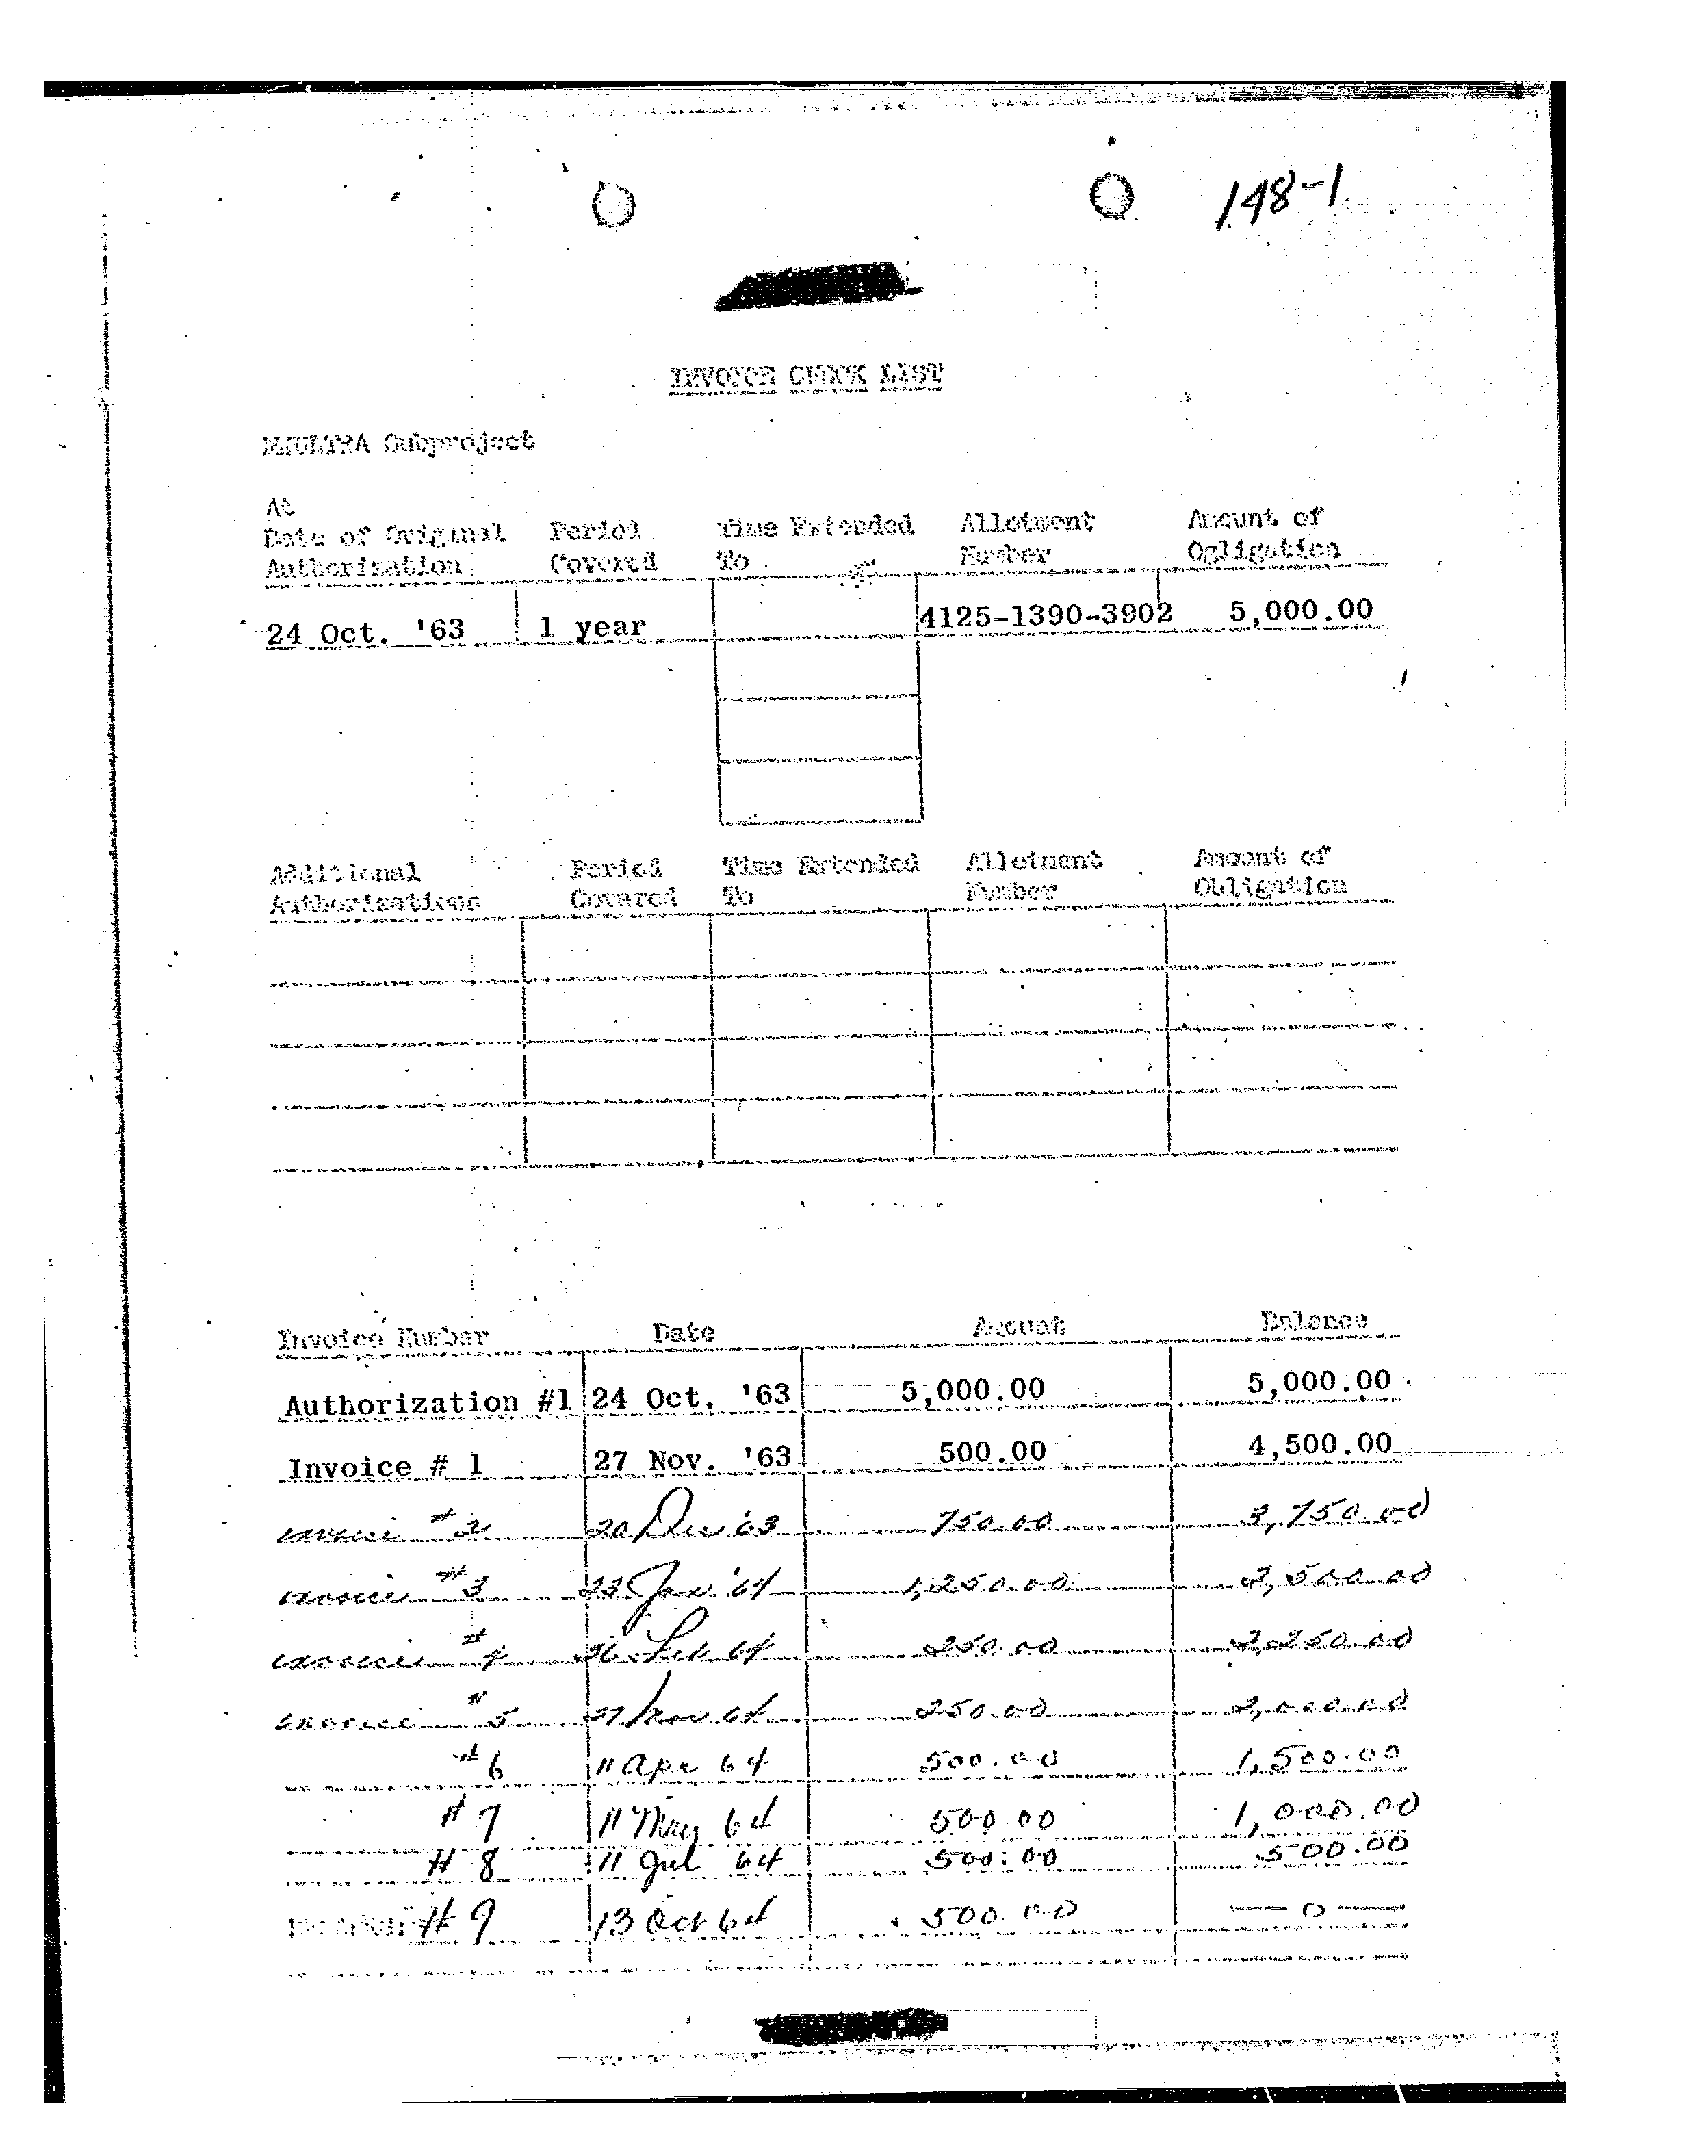 148-1
INVOICE CHECK LIST
MKULTRA Subproject
At
Date of Original Authorization Period Covered Time Extended To Allotment Number Amount of Ogligation
24 Oct. '63 1 year 4125-1390-3902 5,000.00
Additional Authorizations Period Covered Time Extended To Allotment Number Amount of Obligation
Invoice Number Date Amount Balance
Authorization #1 24 Oct. '63 5,000.00 5,000.00
Invoice # 1 27 Nov. '63 500.00 4,500.00
invoice #2 20 Dec '63 750.00 3,750.00
invoice #3 23 Jan '64 1,250.00 2,500.00
invoice # 4 26 Feb 64 250.00 2,250.00
invoice # 5 27 64 250.00 2,000.00
#6 11 Apr 64 500.00 1,500.00
#7 11 May 64 500.00 1,000.00
# 8 11 Jul 64 500.00 500.00
REMARKS: #9 13 Oct 64 500.00 — 0 —